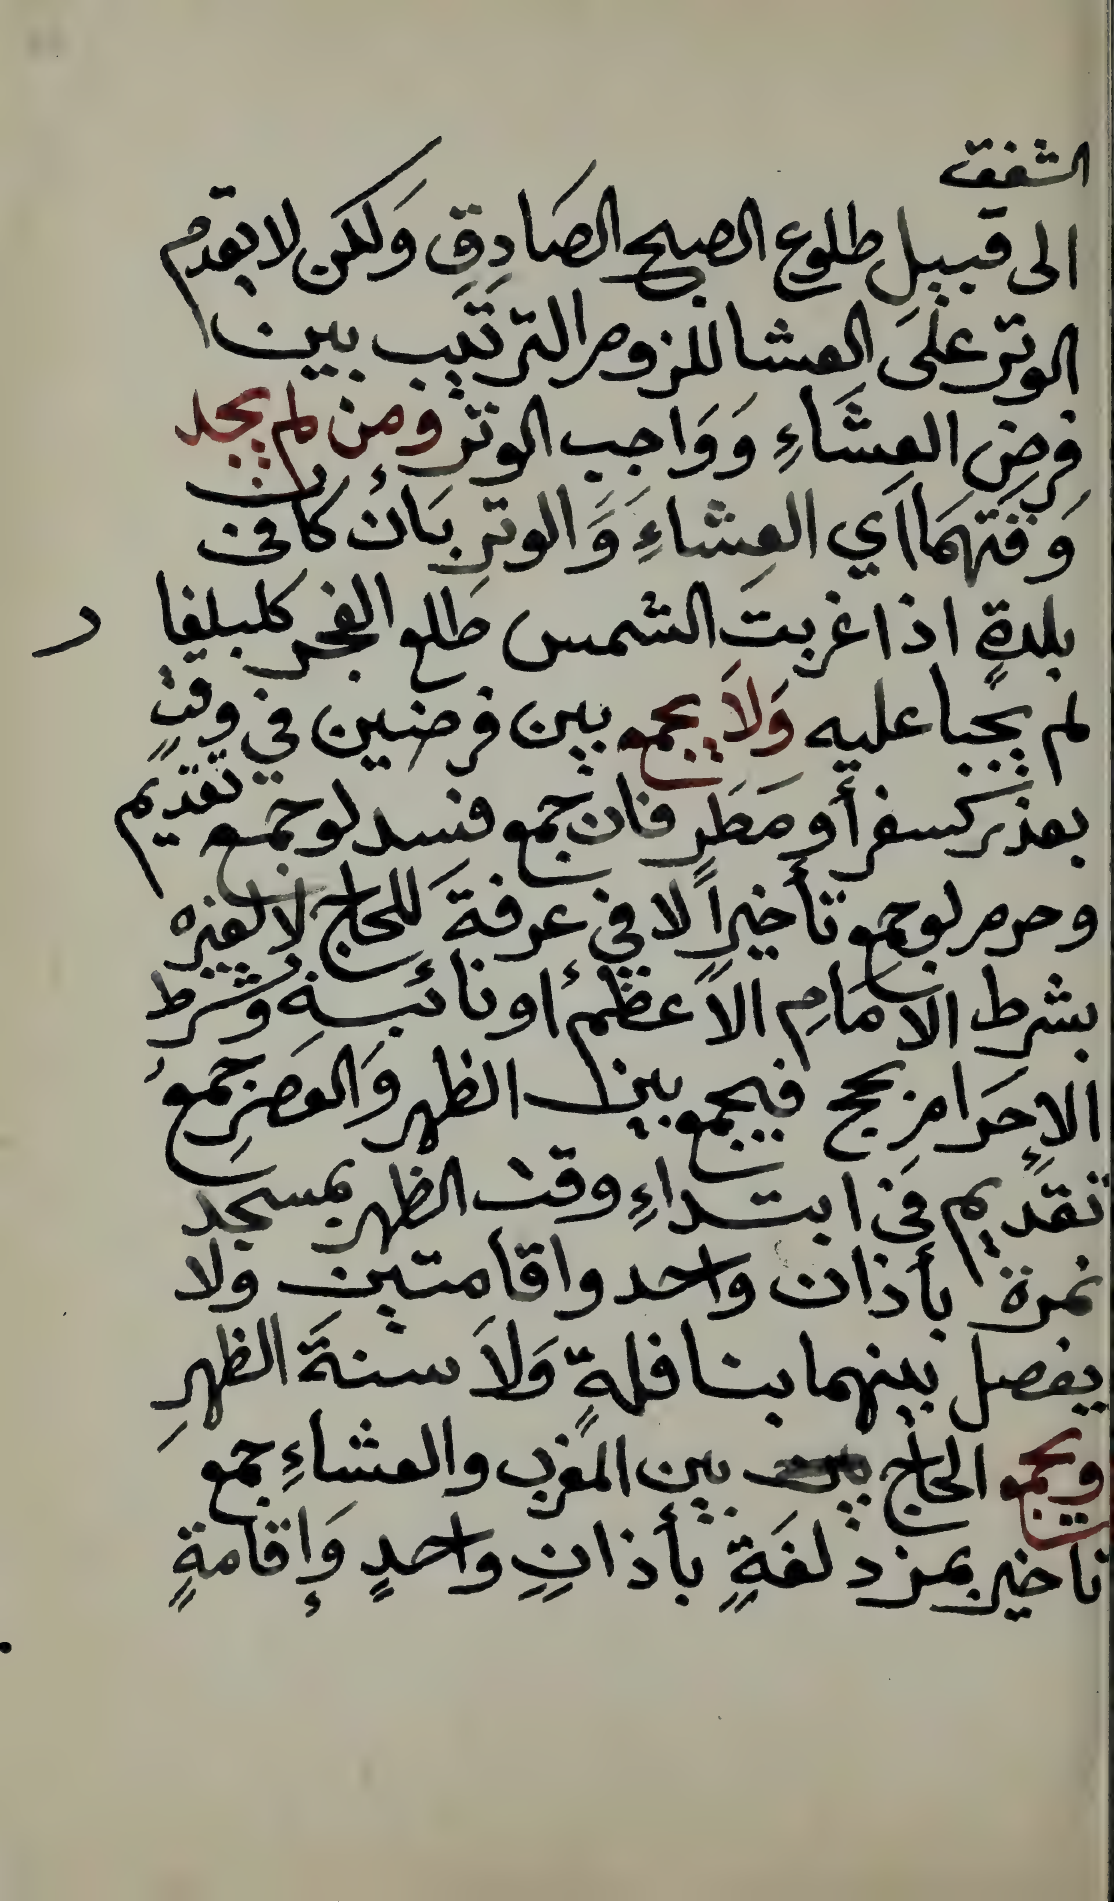 الشفق
الى قبيل طلوع الصبح الصَادِقِ وَلكن لا يقدم
الوتر علَى العشا للزوم الترتيب بين
فرضِ العِشَاءِ وَوَاجب الوتر ومن لم يجد
وَقتهمَا اي العِشاءِ وَالوترِ بَان كان في
بلدةٍ اذا غربتَ الشمس طلع الفجر كلبلغار
لم يجبا عليه وَلاَ يجمع بين فرضين في وقتٍ
بعذر كسفر أو مَطَرٍ فان جمع فسد لو جمع تقديم
وحرم لو جمع تأخيراً لا في عرفةَ للحاج لا لغيره
بشرط الامَامِ الاَعظم او نائبهِ وشرط
الاِحرَام بحج فيجمع بين الظهر وَالعصرِ جمعُ
تقديم في ابتداءِ وقت الظهر بمسجد
نمرة بأذان واحد واقامتين ولا
يفصل بينهما بنافلةٍ وَلاَ سنةَ الظهرِ
ويجمع الحاج بين المغرب والعشاءِ جمع
تأخير بمزدلفَةٍ بأذانِ واحدٍ وَإقامةٍ